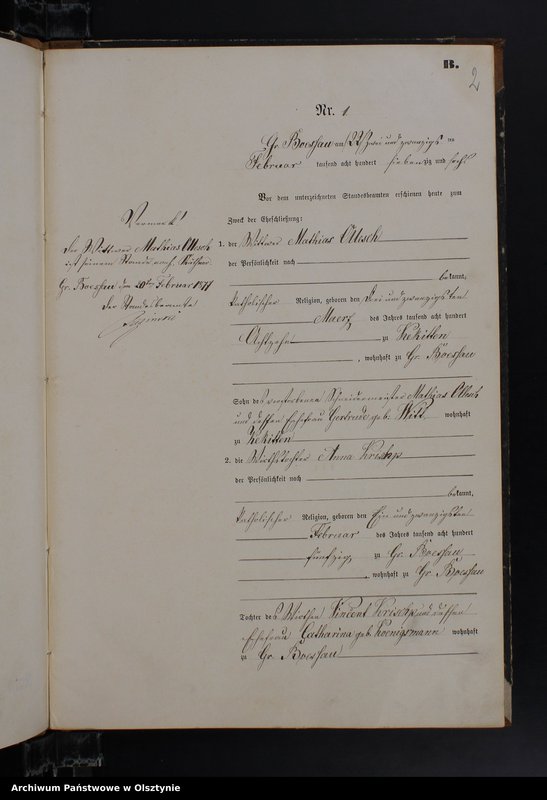 B.
2
Nr. 1
Gr. Boessau am 22 zwei und zwanzigs ten
Februar tausend acht hundert siebenzig und sechs
Vor dem unterzeichneten Standesbeamten erschienen heute zum
Zweck der Eheschließung:
1. der Wittwer Mathias Olltesch
der Persönlichkeit nach
bekannt,
katholischer Religion, geboren den drei und zwanzigsten
Maerz des Jahres tausend acht hundert
Achtzehn zu Kekitten
, wohnhaft zu Gr. Boessau
Sohn des verstorbenen Schneidermeister Mathias
und dessen Ehefrau Gertrude geb. Witt wohnhaft
zu Kekitten
2. die Wirthstochter Anna
der Persönlichkeit nach
bekannt,
katholischer Religion, geboren den Ein und zwanzigsten
Februar des Jahres tausend acht hundert
fünfzig zu Gr. Boessau
, wohnhaft zu Gr. Boessau
Tochter des Wirthen Vincent und dessen
Ehefrau Catharina geb. Koenigsmann wohnhaft
zu Gr. Boessau
Vermerk
Der Wittwer Mathias
ist seinem Stande nach
Gr. Boessau im Februar 1877
Der Standesbeamte
Archiwum Państwowe w Olsztynie